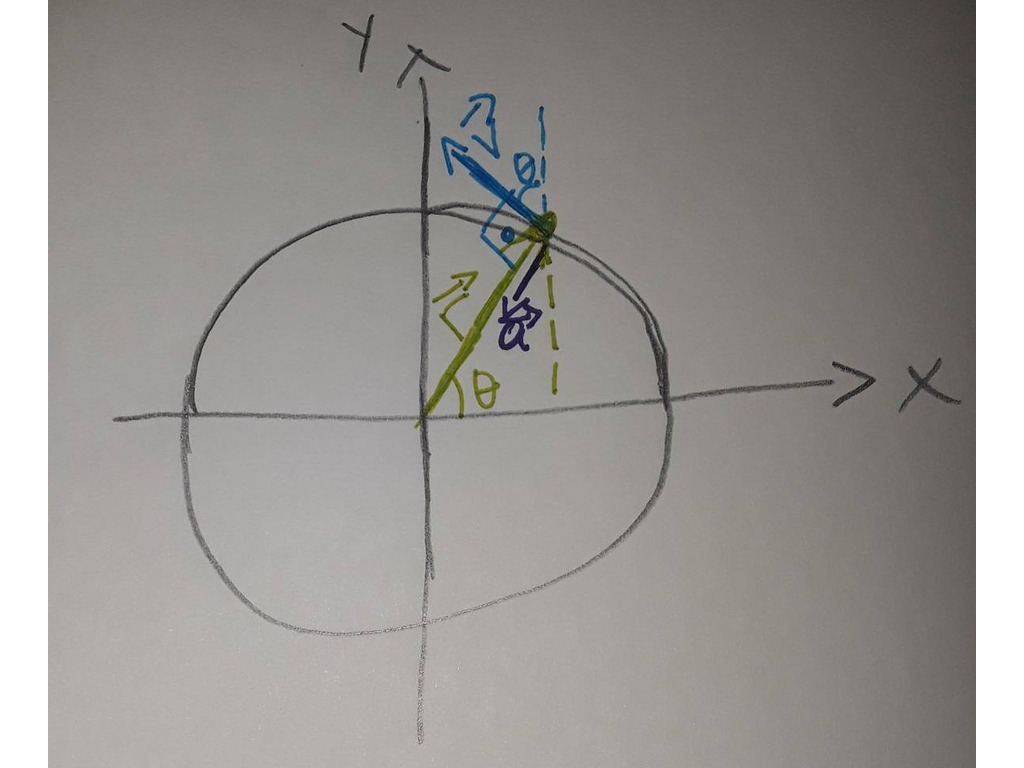 Y
v⃗
θ
r⃗
a⃗
θ
X